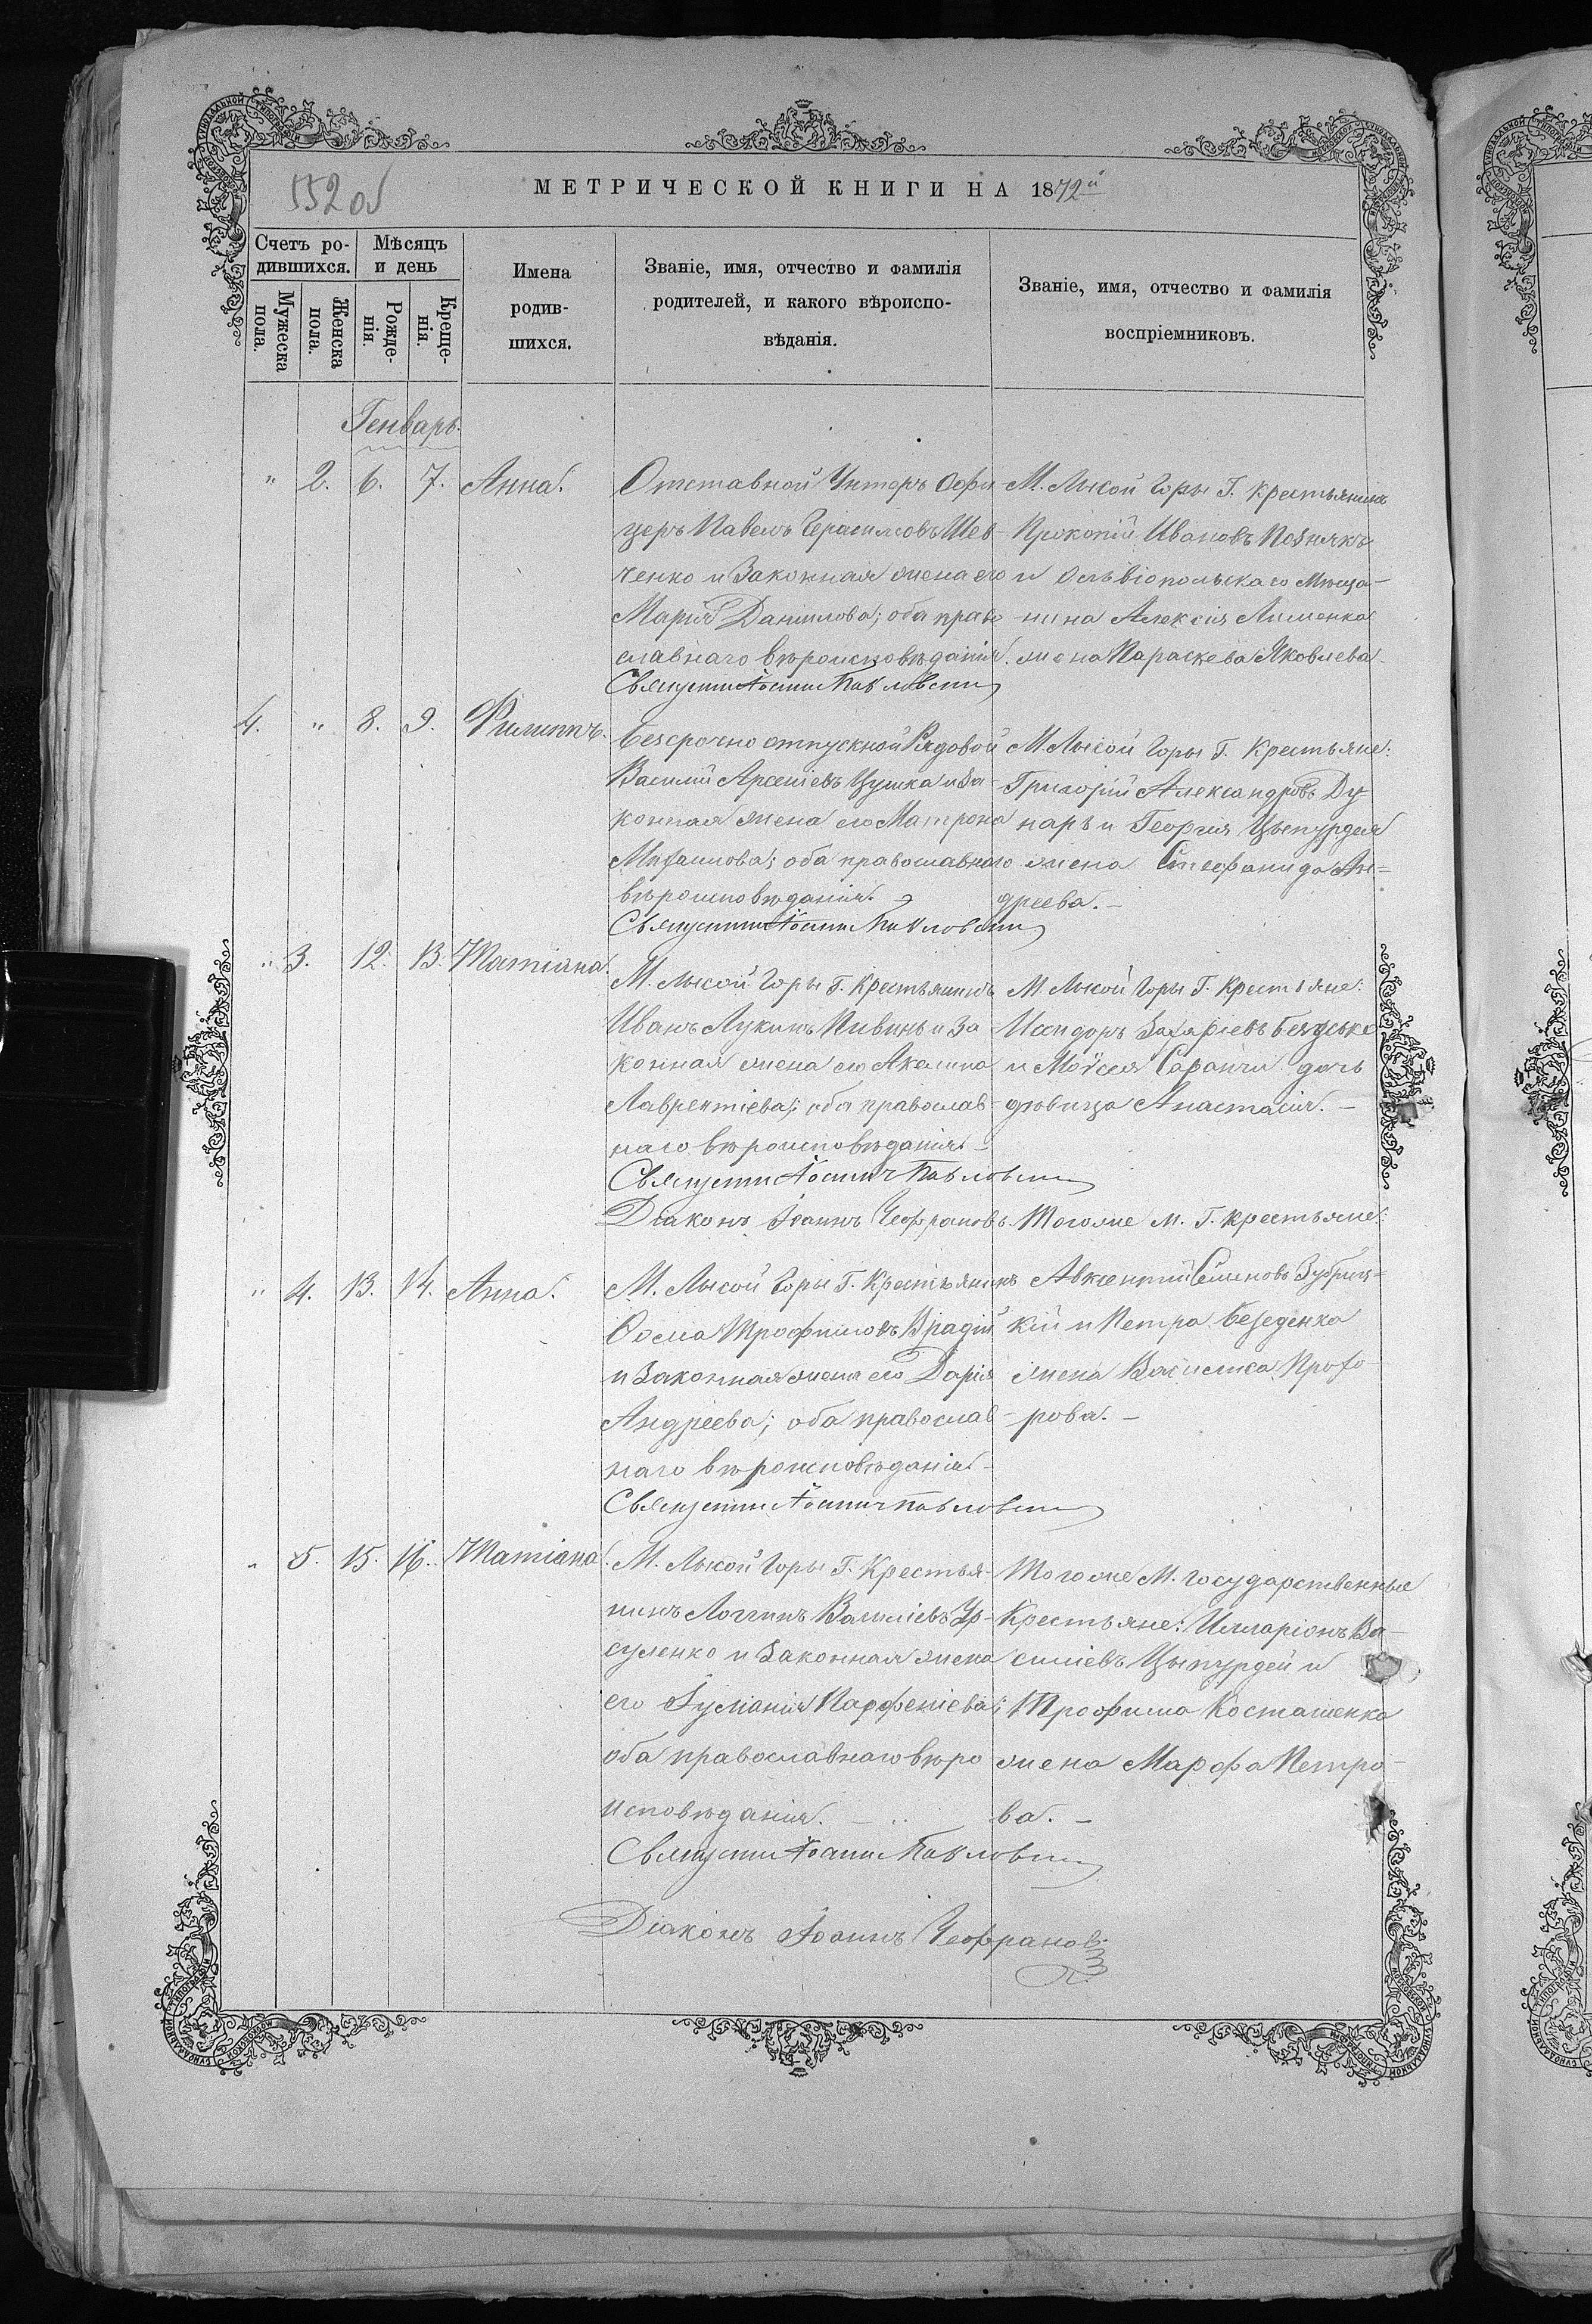 552 об
МЕТРИЧЕСКОЙ КНИГИ НА 1872й
Счетъ ро-
дившихся.
Мѣсяцъ
и день
Мужеска
пола.
Женска
пола.
Рожде-
нія.
Креще-
нія.
Имена
родив-
шихся.
Званіе, имя, отчество и фамилія
родителей, и какого вѣроиспо-
вѣданія.
Званіе, имя, отчество и фамилія
воспріемниковъ.
Генварь.
" 2. 6. 7. Анна.
Отставной Унторъ Офи-
церъ Павелъ Герасимовъ Шев-
ченко и Законная жена его
Марія Данилова; оба право
славнаго вѣроисповѣданія.
Священникъ Іоаннъ Павловскій
М. Лысой Горы Г. Крестьянинъ
Прокопій Ивановъ Познякъ
и Ольвіопольскаго Мѣща-
нина Алексія Лименка
жена Параскева Яковлева.
4. " 8. 9. Филиппъ.
Безсрочно отпускной Рядовой
Василій Арсеніевъ Цушка и За-
конная жена его Матрона
Михаилова; оба православнаго
вѣроисповѣданія.
Священникъ Іоаннъ Павловскій
М. Лысой Горы Г. Крестьяне:
Григорій Александровъ Ду-
наръ и Георгія Цыпурдея
жена Стефанида Ан=
дреева. –
" 3. 12. 13. Татіана.
М. Лысой Горы Г. Крестьянинъ
Иванъ Лукинъ Пивинь и За
конная жена его Акелина
Лаврентіева; оба православ-
наго вѣроисповѣданія. –
Священникъ Іоаннъ Павловскій
Діаконъ Іоаннъ
М. Лысой Горы Г. Крестьяне:
Исидоръ Захаріевъ
и Моѵсея Саранчи дочь
дѣвица Анастасія. –
Тогоже М. Г. Крестьяне:
" 4. 13. 14. Анна.
М. Лысой Горы Г. Крестьянинъ
Ѳома Трофимовъ Врадій
и Законная жена его Дарія
Андреева; оба православ-
наго вѣроисповѣданія. –
Священникъ Іоаннъ Павловскій
Авксентій Семеновъ Зубриц=
кій и Петра Безеденка
жена Василиса Прохо-
рова. –
" 5. 15. 16. Татіана.
М. Лысой Горы Г. Крестья-
нинъ Логгинъ Василіевъ Ур-
суленко и Законная жена
его Іуліанія Парфеніева;
оба православнаго вѣро
исповѣданія. –
Священникъ Іоаннъ Павловскій
Тогоже М. Государственные
Крестьяне: Илларіонъ Ва-
силіевъ Цыпурдей и
Трофима Косташенка
жена Марфа Петро-
ва. –
Діаконъ Іоаннъ